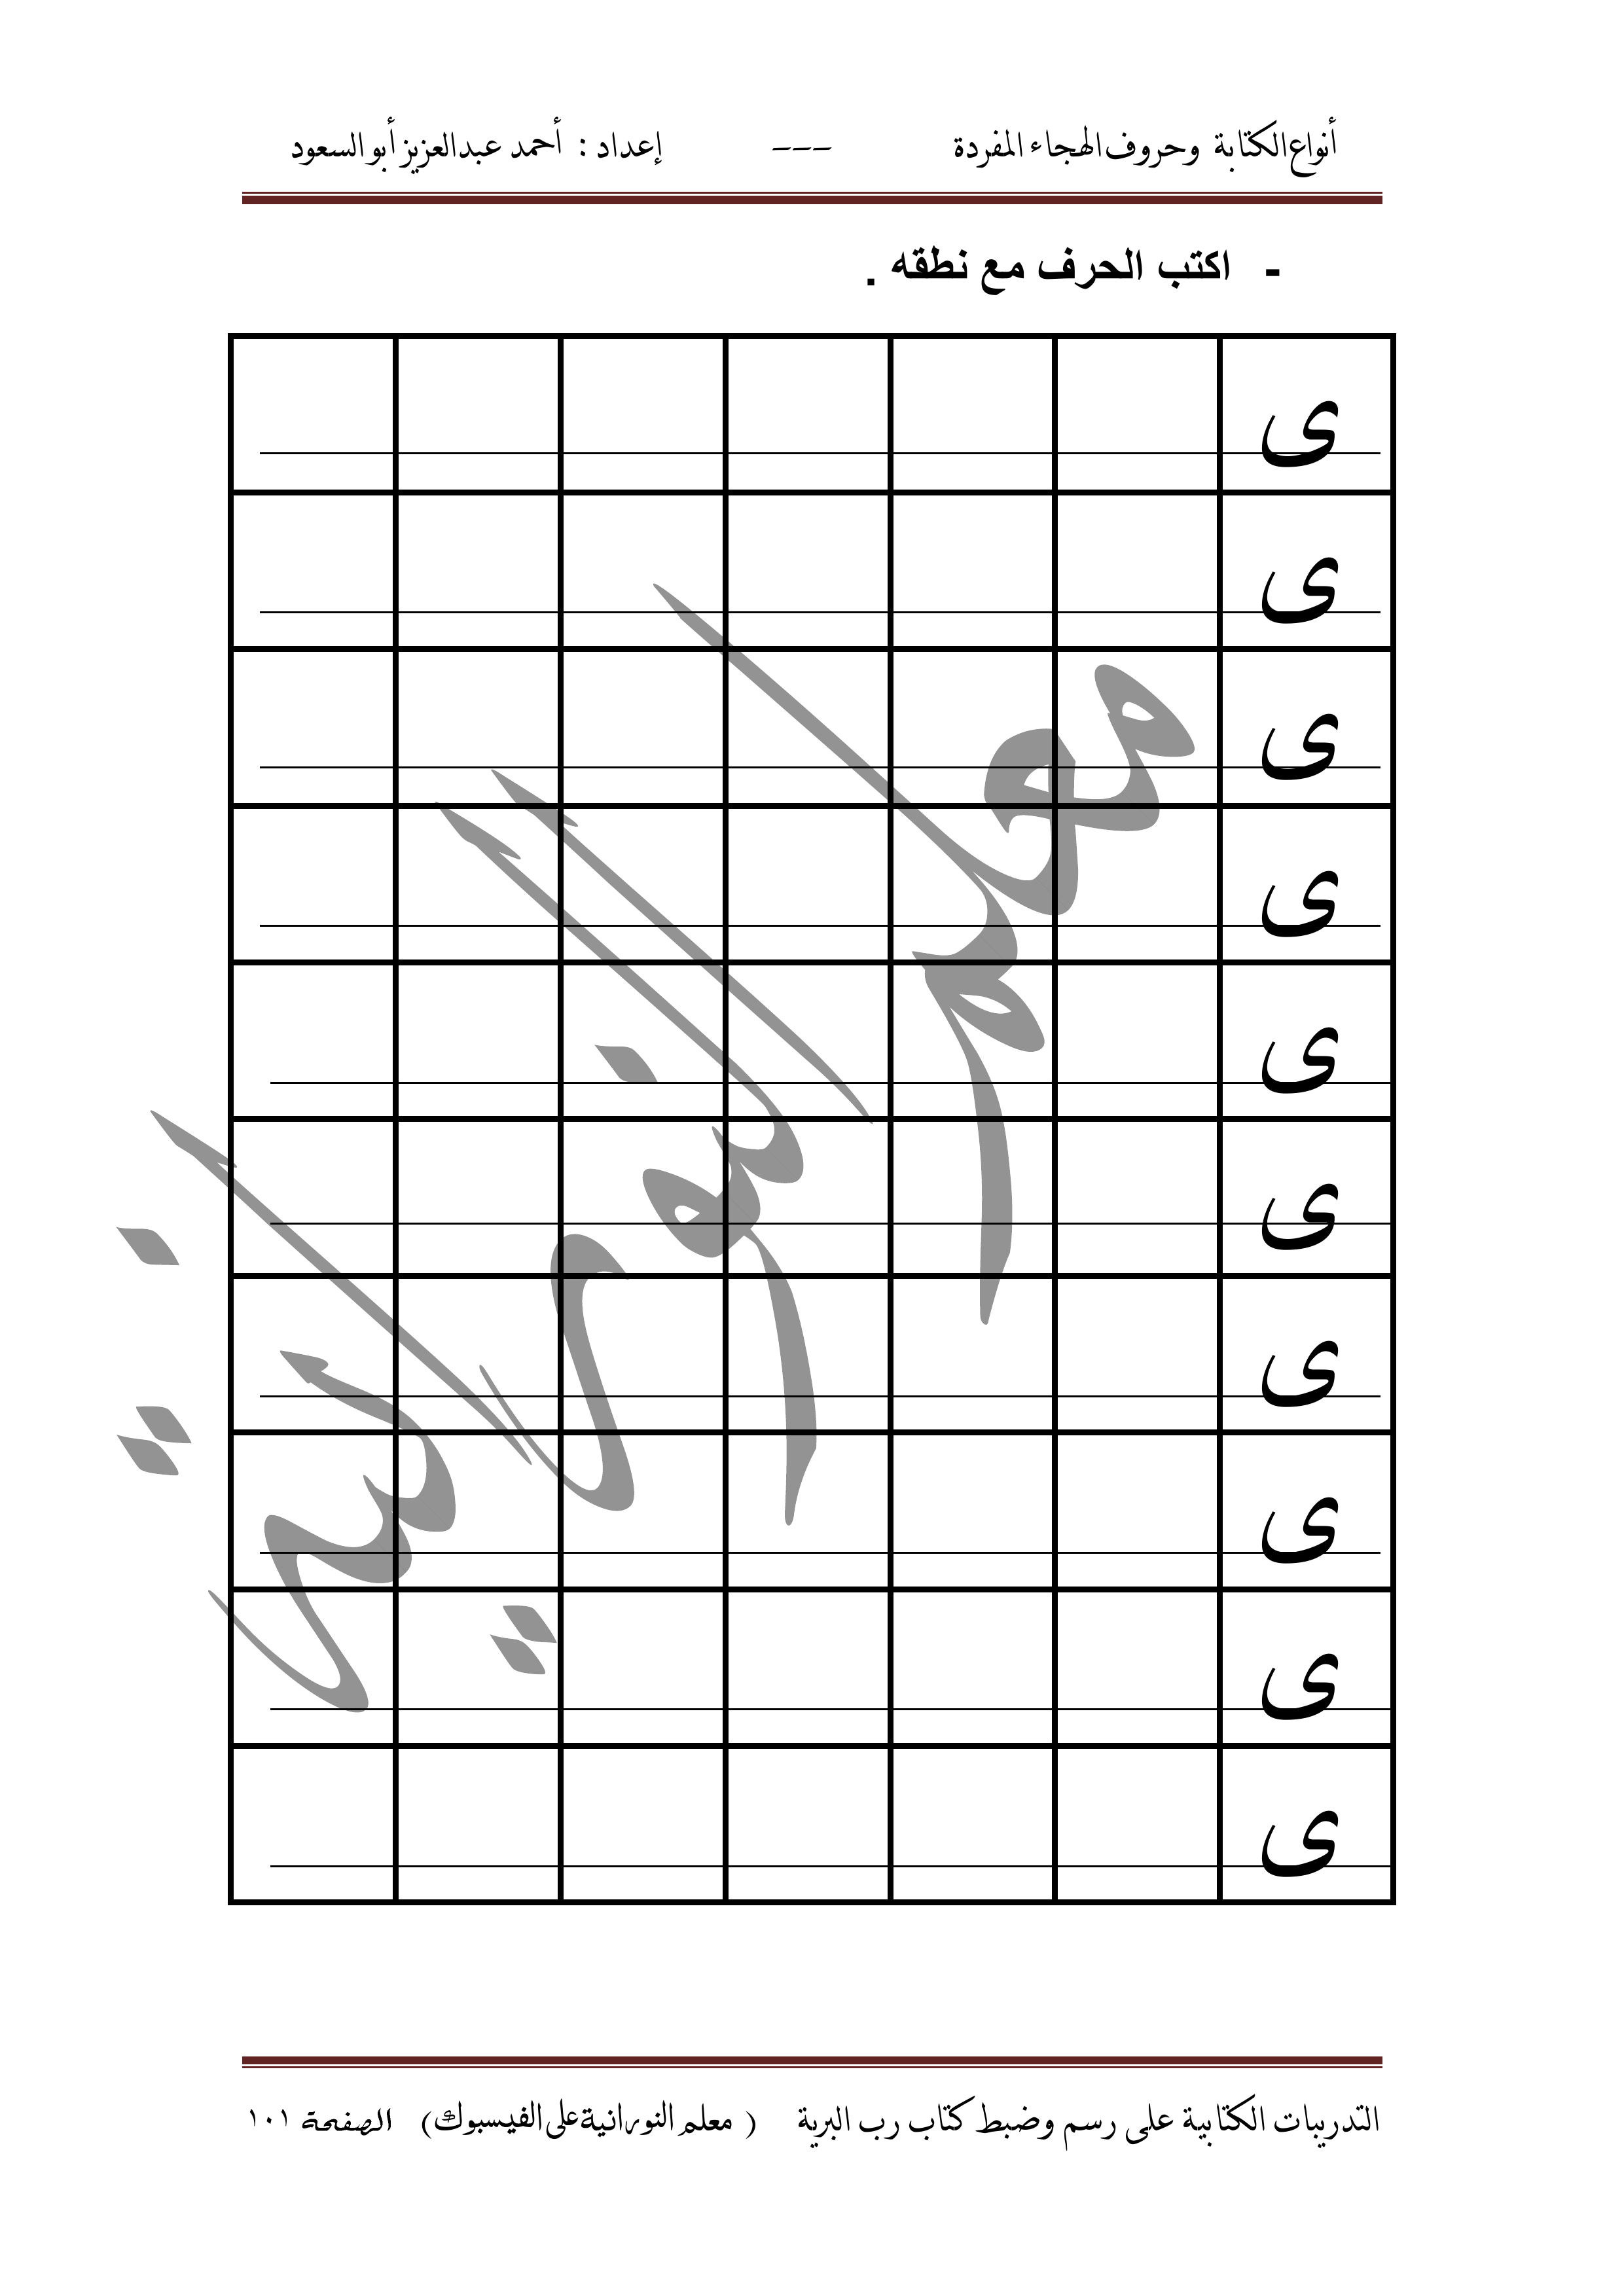 أنواع الكتابة وحروف الهجاء المفردة --- إعداد : أحمد عبد العزيز أبو السعود
- اكتب الحرف مع نطقه .
ى
ى
ى
ى
ى
ى
ى
ى
ى
ى
معلم النورانية
التدريبات الكتابية على رسم وضبط كتاب رب البرية ( معلم النورانية على الفيسبوك) الصفحة ١٠١